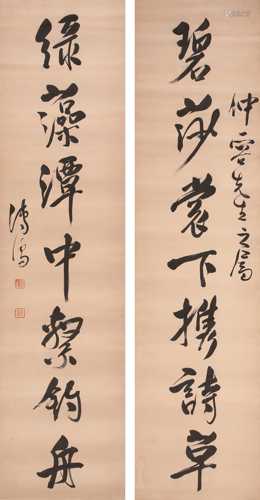 仲容先生之屬
碧莎裳下携詩草
綠藻潭中繫釣舟
溥儒